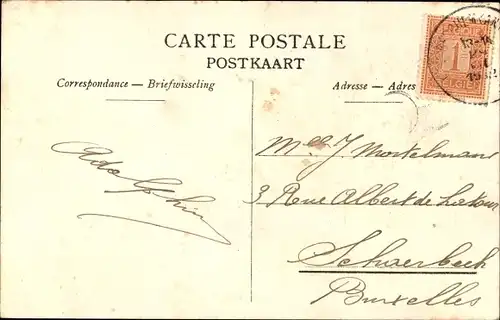 CARTE POSTALE
POSTKAART
Correspondance — Briefwisseling
Adresse — Adres
1
Adolphine
Mlle J Mortelmans
3 Rue Albert de Latour
Schaerbeek
Bruxelles